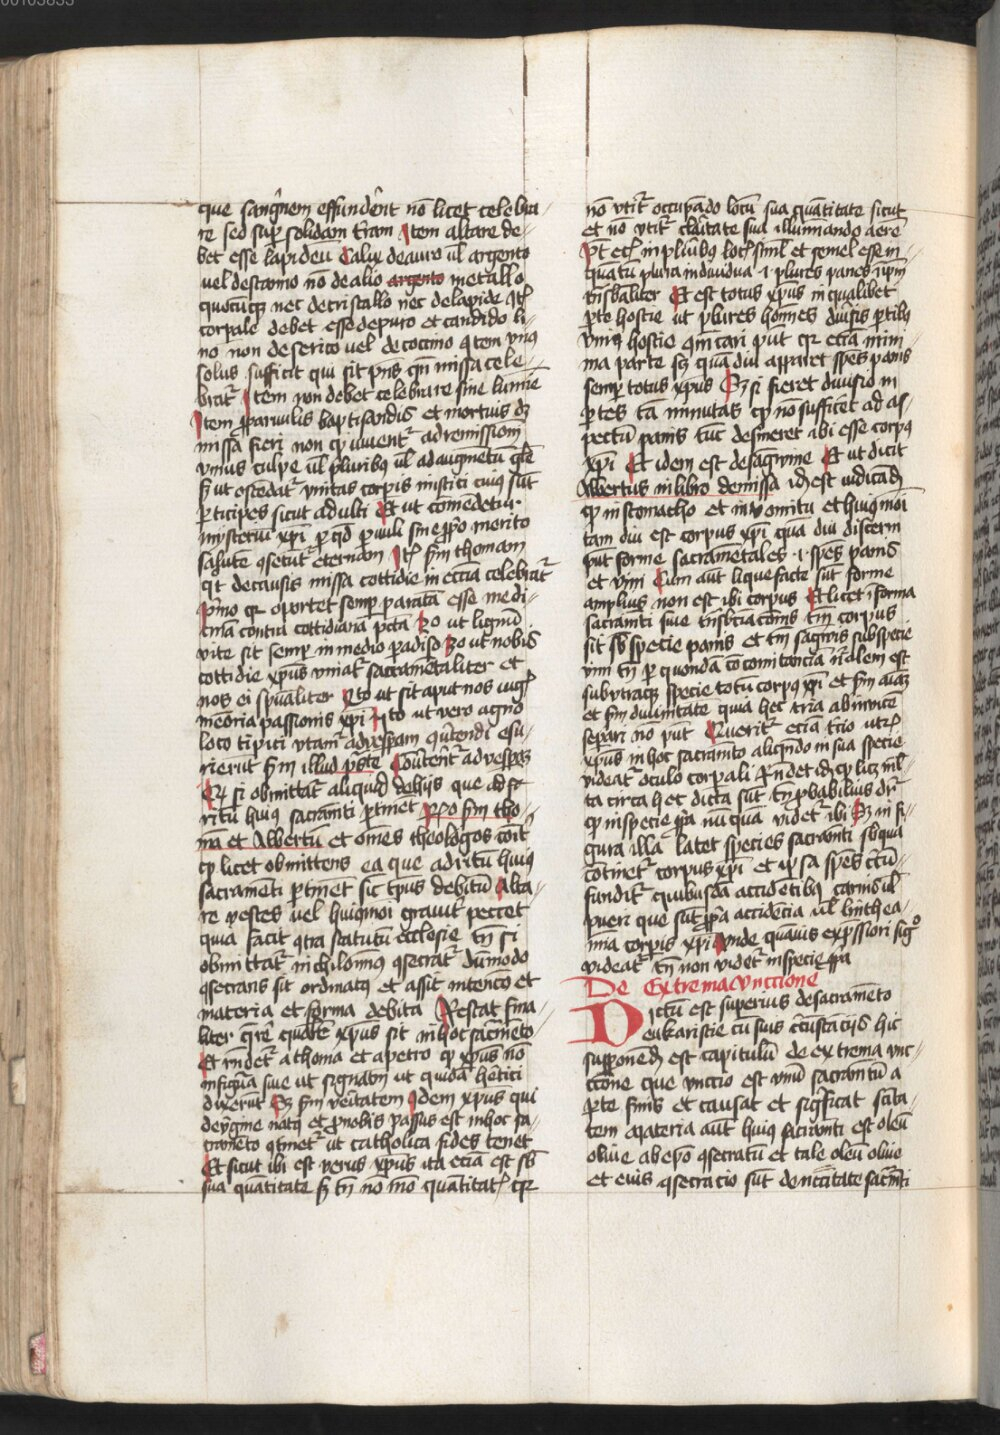 que sangᷓnem effunderēt nō licet celebra-
re sed sup̄ solidam t̄ram Item altare de-
bet esse lapideū Calix de auro ul̄ argento
vel de stanno nō de alio argento metallo
quocūqꝫ nec de cristallo nec de lapide Itē
corpale debet esse de puro et candido li-
no non de serico vel de coccino Item vnus
solus sufficit qui sit pn̄s qn̄ missa cele-
bratᷣ Item non debet celebrare sine lumīe
Item ꝓ paruulis baptisandis et mortuis dꝫ
missa fieri non ꝙ iuuentᷣ ad remissionem
vnius culpe ul̄ pluribꝯ ul̄ ad augmētū glē
sꝫ ut ostēdatᷣ vnitas corpis mistici cuiꝯ sūt
ꝑticipes sicut adulti Et ut comēdetur
mysteriū xp̄i ꝑ qd̄ ꝑuuli sine ꝓpo merito
salutē ꝯsequtᷣ eternam Itē scd̄m thomam
qͣt de causis missa cottidie in eccīa celebratᷣ
Primo qꝛ oportet semp̄ paratā esse medi-
cinā contra cottidiana pctā 2o ut lignū
vite sit semp̄ in medio paradiso 3o ut nobis
cottidie xp̄us vniatᷣ sacramētaliter et
nos ei sp̄ualiter 4to ut sit aput nos iugis
memōria passionis xp̄i 5to ut vero agno
loco tipici vtamᷣ ad vesp̄am
rierūt scd̄m illud ps̄te Cōuertētᷣ ad vesp̄aꝫ
Et si obmittatᷣ aliquid de hijs que ad sꝑ
ritū huiꝯ sacramēti ꝑtinet Rn̄deo scd̄m tho-
mā et Albertū et omēs theologos cōit̄
ꝙ licet obmittens ea que ad ritū huiꝯ
sacramenti ꝑtinēt sic tp̄us debitū alta-
re vestes vel huiꝯmoi grauitᷣ peccet
quia facit ꝯtra statutū ecclesie tn̄ si
obmittātᷣ nichilominꝯ ꝯsecratᷣ dūmodo
ꝯsecrans sit ordinatꝯ et assit intencō et
materia et forma debita Restat fina-
liter qr̄e quare xp̄us sit in hoc sac̄mēto
Et rn̄detᷣ a thoma et a petro ꝙ xp̄us nō
in figura siue ut signatū ut quidā he͛tici
dixerūt Sꝫ scd̄m veritatem Idem xp̄us qui
de ꝟgine natꝯ et ꝓ nobis passus est in hoc sa-
cramēto ꝯtinetᷣ ut catholica fides tenet
Et sicut ibi est verus xp̄us ita eciā est sb̄
sua quātitate sꝫ tn̄ nō mō quātitatiᷣ qꝛ
nō vtitᷣ occupādo locū sua quātitate sicut
et nō vtitᷣ claritate sua illuminando aerē
Pōt ecīā in plͥribꝯ locis siml̄ et semel esse in-
quātū plura indiuidua .i. plures panes in ip̄m
trn̄sb̄aliter Et est totus xp̄us in qualibet
ꝑte hostie ut plures hoīnes diuersis ꝑtibꝯ
vniꝯ hostie cōicari pn̄t qꝛ eciā mini-
ma parte scꝫ quā diu apparet spēs panis
semp̄ totus xp̄us Sꝫ si fieret diuisio in
ꝑtes tā minutas ꝙ nō sufficēt ad as-
pectū panis tūc desineret ibi esse corpꝯ
xp̄i Et idem est de sagᷓwine Et ut dicit
Albertus in libro de missa id̄ est iudicādū
ꝙ in stomacho et in vomitu et huiꝯmoi
tam diu est corpus xp̄i quā diu discerni
pn̄t forme sacramētales .i. spēs panis
et vini Cum aūt liquefacte sūt forme
amplius non est ibi corpus Et licet ī forma
sacramti siue trn̄sb̄ciacōnis tm̄ corpus
sit sb̄ specie panis et tm̄ sagᷓwis sub specie
vini tn̄ ꝑ quondā cōcomitanciā nāl̄em est
sub utraqꝫ specie totū corpꝯ xp̄i et scd̄m aīaꝫ
et scd̄m diuinitate quia hec tria ab inuicē
separi nō pn̄t Queritᷣ eciā tercio utrū
xp̄us in hoc sacramēto aliqn̄do in sua specie
videatᷣ oculo corpali Et rn̄det id̄ ꝙ licꝫ ml̄-
ta circa hec dicta sunt tn̄ ꝓbabilius dr̄
ꝙ in specie ꝓpa nūquā videtᷣ ibi Sꝫ in fi-
gura illa latet species sacramti sb̄ qua
cōtinetᷣ corpus xp̄i et ip̄sa spēs cͥcū-
funditᷣ quibusdā accidētibꝯ carnis ul̄
pueri que sut ꝓpa accidēcia ul̄ linthea-
mīa corpis xp̄i vnde quāuis expͥssiori sigᷓo
videatᷣ tn̄ non videtᷣ in specie ꝓpa
De Extrema vnctione
Dictū est superius de sacramēto
eukaristie cū suis cͥcūstācijs hic
supponend̄ est capitulū de extrema vnc-
cione que vnctio est vnū sacramtū a
ꝑte finis et causat et sigᷓficat scītᷓa-
tem Materia aūt huiꝯ sacramti est oleū
oliue ab ep̄o ꝯsecratū et tale oleū oliue
et eius ꝯsecracio sūt de nc̄citate sacm̄ti